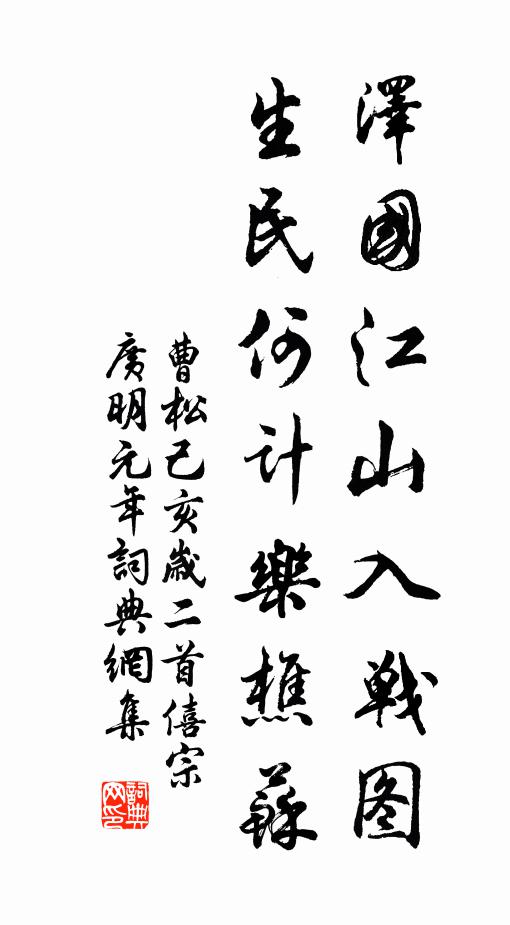 澤國江山入戰图
生民何计樂樵蘇
曹松己亥歲二首僖宗
廣明元年詞典網集
詞典网印